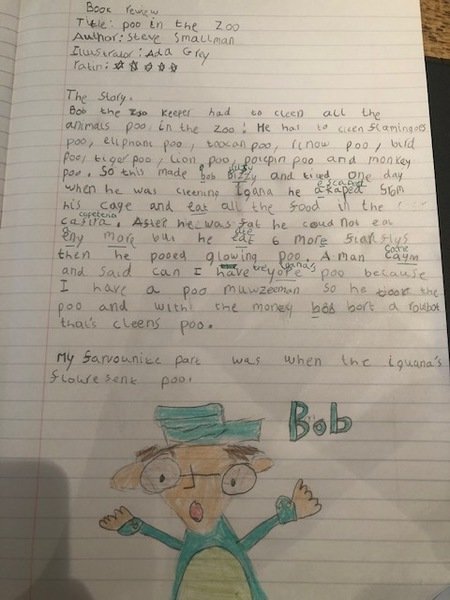 Book review
Title: poo in the Zoo
Author: Steve Smallman
Illustrator: Ada Grey
ratin: ☆ ☆ ☆ ☆ ☆
The Story.
Bob the Zoo keeper had to cleen all the
animals poo in the zoo. He has to cleen flamingoes
poo, eliphant poo, toocan poo, rinow poo, bird
poo, tiger poo, lion poo, porcpin poo and monkey
poo. So this made bob bizzy and tired one day
escaped
when he was cleening Igana he akaped from
his cage and eat all the food in the
capeteria
cafira. After he was fat he coud not eat
eny more but he eat 6 more fiarflys
came
then he pooed glowing poo. A man caym
iguana's
and said can I have yore poo because
I have a poo muwzeeman so he took the
poo and with the money bob bort a rowbot
that's cleens poo.
My farvounite part was when the iguana's
flouresent poo.
Bob